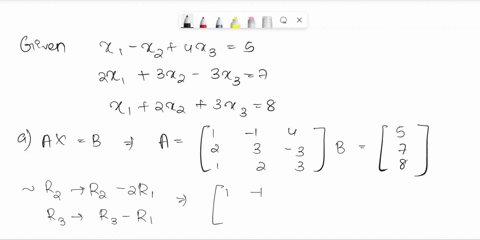 Given x₁ - x₂ + 4x₃ = 5
2x₁ + 3x₂ - 3x₃ = 7
x₁ + 2x₂ + 3x₃ = 8
a) AX = B ⇒ A = [1 -1 4; 2 3 -3; 1 2 3] B = [5; 7; 8]
~ R₂ → R₂ - 2R₁ ⇒ [1 -1
R₃ → R₃ - R₁